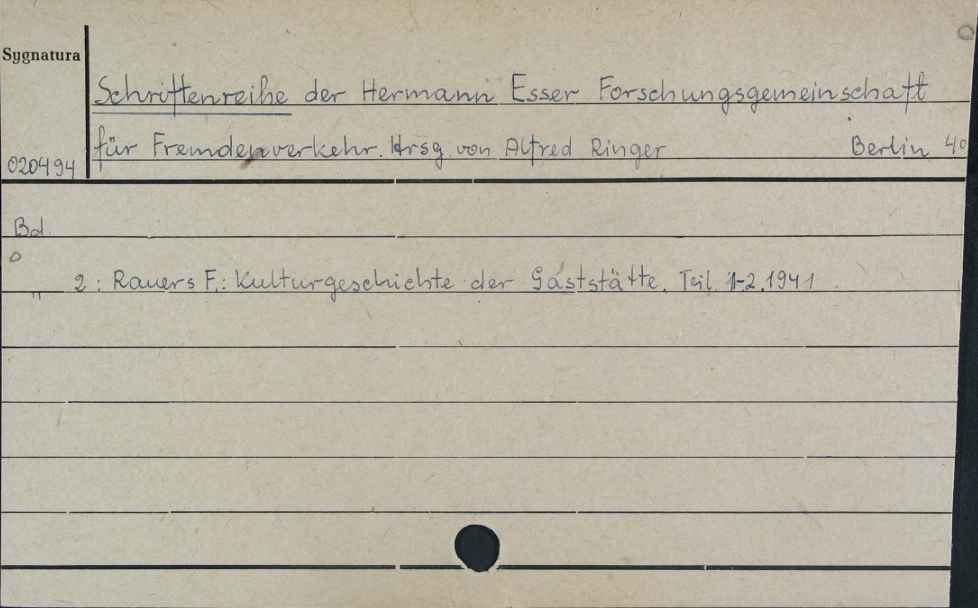 Sygnatura
Schriftenreihe der Hermann Esser Forschungsgemeinschaft
für Fremdenverkehr. Hrsg. von Alfred Ringer Berlin 4°
020494
Bd.
" 2: Rauers F.: Kulturgeschichte der Gaststätte. Teil 1-2. 1941